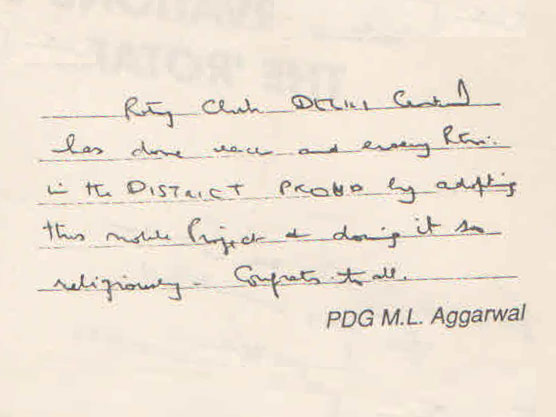 Rotary Club DELHI Central
has done well and every Rtn.
in the DISTRICT PROUD by adopting
this noble Project & doing it so
religiously - Congrats to all.
PDG M.L. Aggarwal